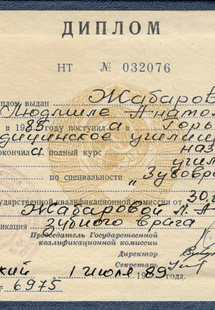 ДИПЛОМ
НТ № 032076
диплом выдан Жабаров
Людмиле Анатол
в 1985 поступил а Горьк
медицинское училище
окончил а полный курс наз
учили
по специальности „Зубовра
государственной квалификационной комиссии от 30.
Жабаровой Л. А.
зубного врача
Председатель Государственной
квалификационной комиссии
Директор
Секретарь
кий 1 июля 89
6975